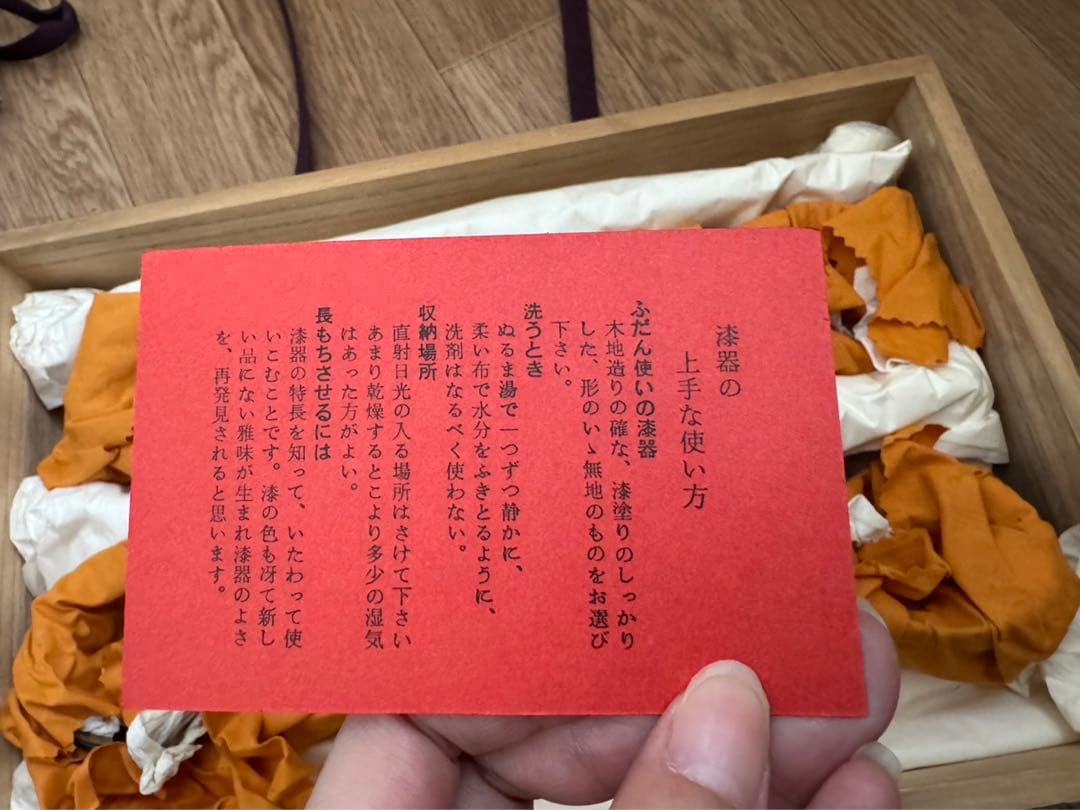 漆器の
上手な使い方
ふだん使いの漆器
木地造りの確な、漆塗りのしっかり
した、形のいゝ無地のものをお選び
下さい。
洗うとき
ぬるま湯で一つずつ静かに、
柔い布で水分をふきとるように、
洗剤はなるべく使わない。
収納場所
直射日光の入る場所はさけて下さい
あまり乾燥するとこより多少の湿気
はあった方がよい。
長もちさせるには
漆器の特長を知って、いたわって使
いこむことです。漆の色も冴て新し
い品にない雅味が生まれ漆器のよさ
を、再発見されると思います。